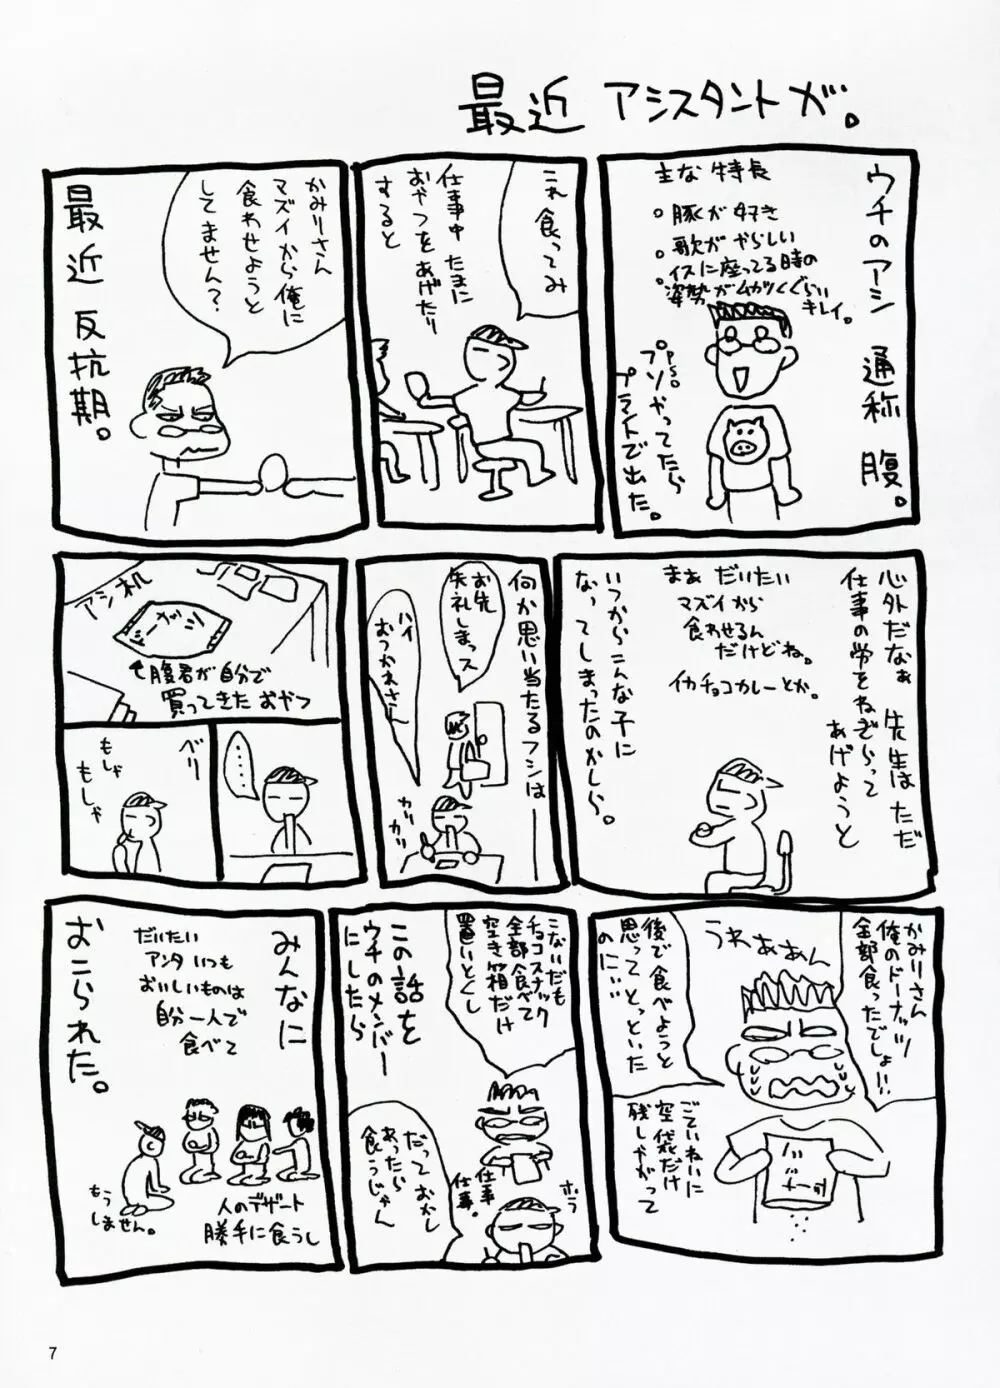 最近 アシスタントが。
ウチのアシ 通称 腹。
主な特長
。豚が好き
。歌がやらしい
。イスに座ってる時の
姿勢がムカツくぐらい
キレイ。
P.S。
プソやってたら
プラントで出た。
これ食ってみ
仕事中 たまに
おやつをあげたり
すると
かみりさん
マズイから俺に
食わせようと
してません?
最近 反抗期。
心外だなぁ 先生はただ
仕事の労をねぎらって
あげようと
まぁ だいたい
マズイから
食わせるん
だけどね。
イカチョコカレーとか。
いつからこんな子に
なってしまったのかしら。
何か思い当たるフシは
お先
失礼しまっス
ハイ
おつかれさん
カリ
カリ
アシ机
シガー
腹君が自分で
買ってきたおやつ
・・・・・
ベリ
もしゃ
もしゃ
かみりさん
俺のドーナッツ
全部食ったでしょ!!
うわぁぁん
後で食べようと
思ってとっといた
のに…
ごていねいに
空袋だけ
残しやがって
こないだも
チョコスナック
全部食べて
空き箱だけ
置いとくし
この話を
ウチのメンバー
にしたら
ホラ
仕事
仕事。
だって おかし
あったら
食うじゃん
みんなに
おこられた。
だいたい
アンタ いつも
おいしいものは
自分一人で
食べて
人のデザート
勝手に食うし
もう
しません。
7